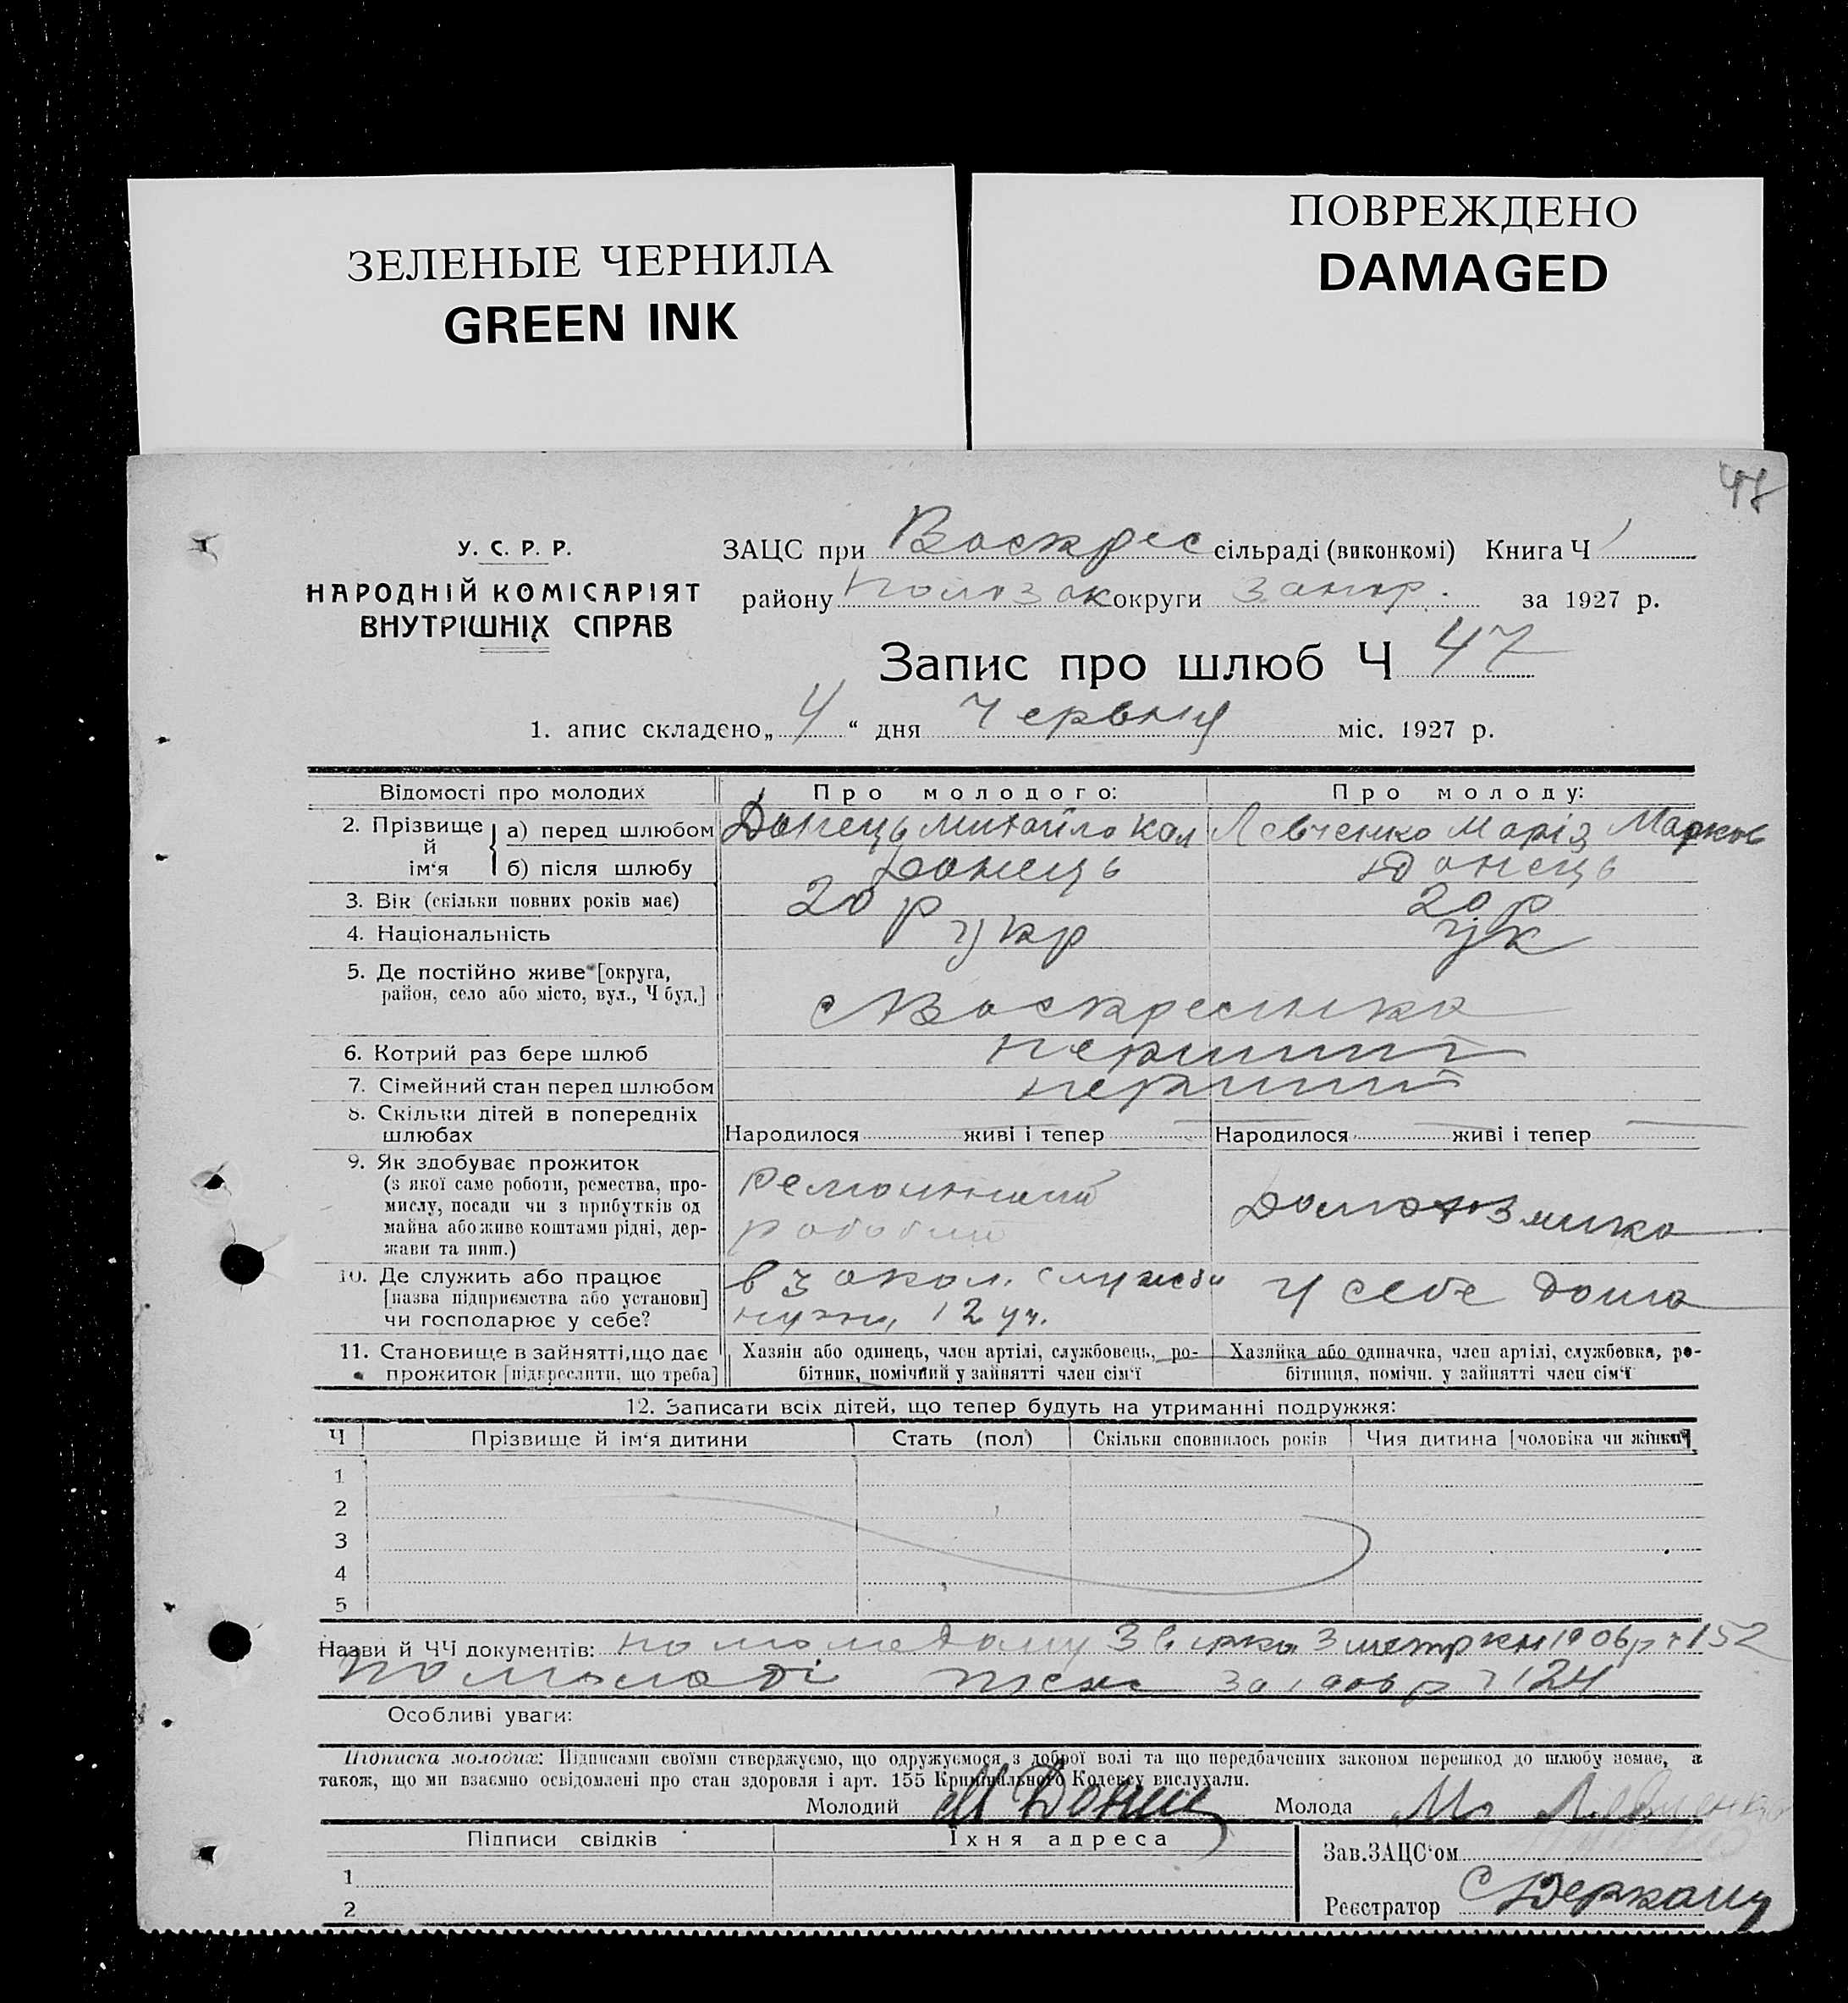 ЗЕЛЕНЫЕ ЧЕРНИЛА
GREEN INK
ПОВРЕЖДЕНО
DAMAGED
48
У. С. Р. Р.
НАРОДНІЙ КОМІСАРІЯТ
ВНУТРІШНІХ СПРАВ
ЗАЦС при Воскрес сільраді (виконкомі) Книга Ч 1
району округи Запор. за 1927 р.
Запис про шлюб Ч 47
1. апис складено „4“ дня Червня міс. 1927 р.
Відомості про молодих Про молодого: Про молоду:
2. Прізвище й ім‘я а) перед шлюбом Донець Михайло Левченко Марія Марков
б) після шлюбу Донець Донець
3. Вік (скільки повних років має) 20 р 20 р
4. Національність укр ук
5. Де постійно живе [округа,
район, село або місто, вул., Ч буд.]
с Воскресенка
6. Котрий раз бере шлюб перший
7. Сімейний стан перед шлюбом перший
8. Скільки дітей в попередніх
шлюбах Народилося живі і тепер Народилося живі і тепер
9. Як здобуває прожиток
(з якої саме роботи, ремества, про-
мислу, посади чи з прибутків од
майна або живе коштами рідні, дер-
жави та инш.)
Ремонтний
робочий
10. Де служить або працює
[назва підприємства або установи]
чи господарює у себе?
служби
12 уч.
У себе дома
11. Становище в зайнятті, що дає
прожиток [підкреслити, що треба]
Хазяїн або одинець, член артілі, службовець, ро-
бітник, помічний у зайнятті член сім‘ї
Хазяйка або одиначка, член артілі, службовка, ро-
бітниця, помічн. у зайнятті член сім‘ї
12. Записати всіх дітей, що тепер будуть на утриманні подружжя:
Ч Прізвище й ім‘я дитини Стать (пол) Скільки сповнилось років Чия дитина [чоловіка чи жінки]
1
2
3
4
5
Назви й ЧЧ документів: по молодому 1906 р ч 152
по молоді теж за 1906 р ч 124
Особливі уваги:
Підписка молодих: Підписами своїми стверджуємо, що одружуємося з доброї волі та що передбачених законом перешкод до шлюбу немає, а
також, що ми взаємно освідомлені про стан здоровля і арт. 155 Кримінального Кодексу вислухали.
Молодий М Донец Молода М. Левченко
Підписи свідків Їхня адреса
Зав. ЗАЦС‘ом
1
Реєстратор
2